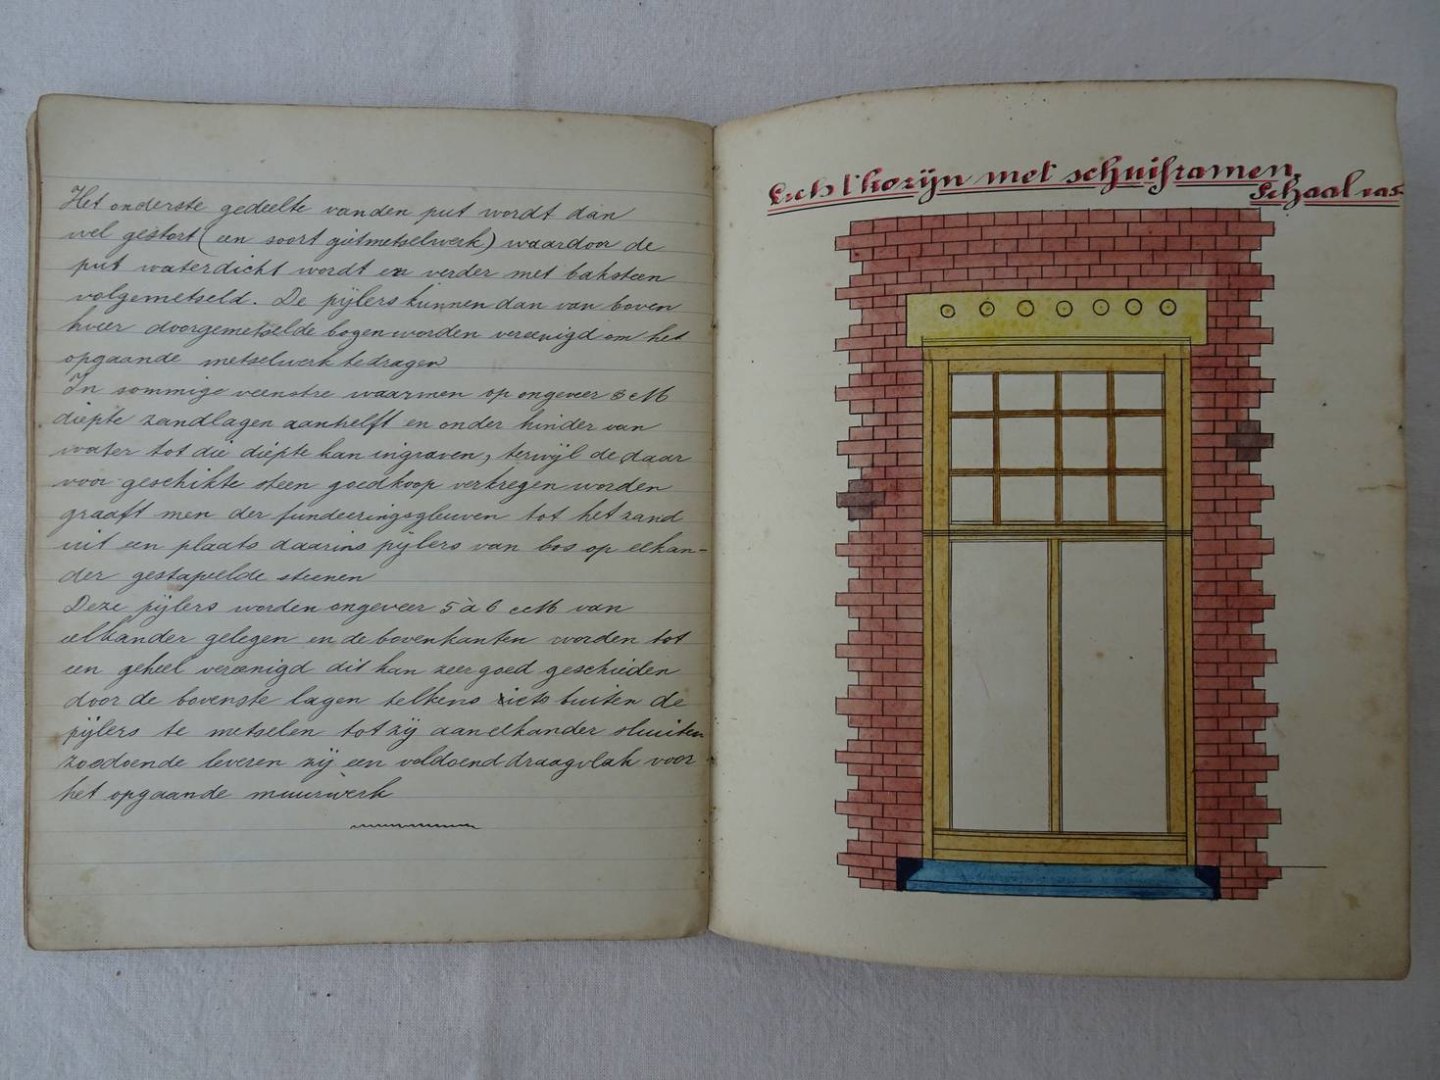 Het onderste gedeelte van den put wordt dan
wel gestort (een soort gietmetselwerk) waardoor de
put waterdicht wordt en verder met baksteen
volgemetseld. De pijlers kunnen dan van boven
door gemetselde bogen worden vereenigd om het
opgaande metselwerk te dragen
In sommige veenstre waar men op ongeveer 3 M
diepte zandlagen aanhelft en onder hinder van
water tot die diepte kan ingraven, terwijl de daar
voor geschikte steen goedkoop verkregen worden
graaft men der fundeeringsgleuven tot het zand
uit een plaats daarins pijlers van los op elkan-
der gestapelde steenen
Deze pijlers worden ongeveer 5 à 6 M van
elkander gelegen en de bovenkanten worden tot
een geheel vereenigd dit kan zeer goed geschieden
door de bovenste lagen telkens iets buiten de
pijlers te metselen tot zij aan elkander sluiten
zoodoende leveren zij een voldoend draagvlak voor
het opgaande muurwerk
Lichtkozijn met schuiframen,
Schaal